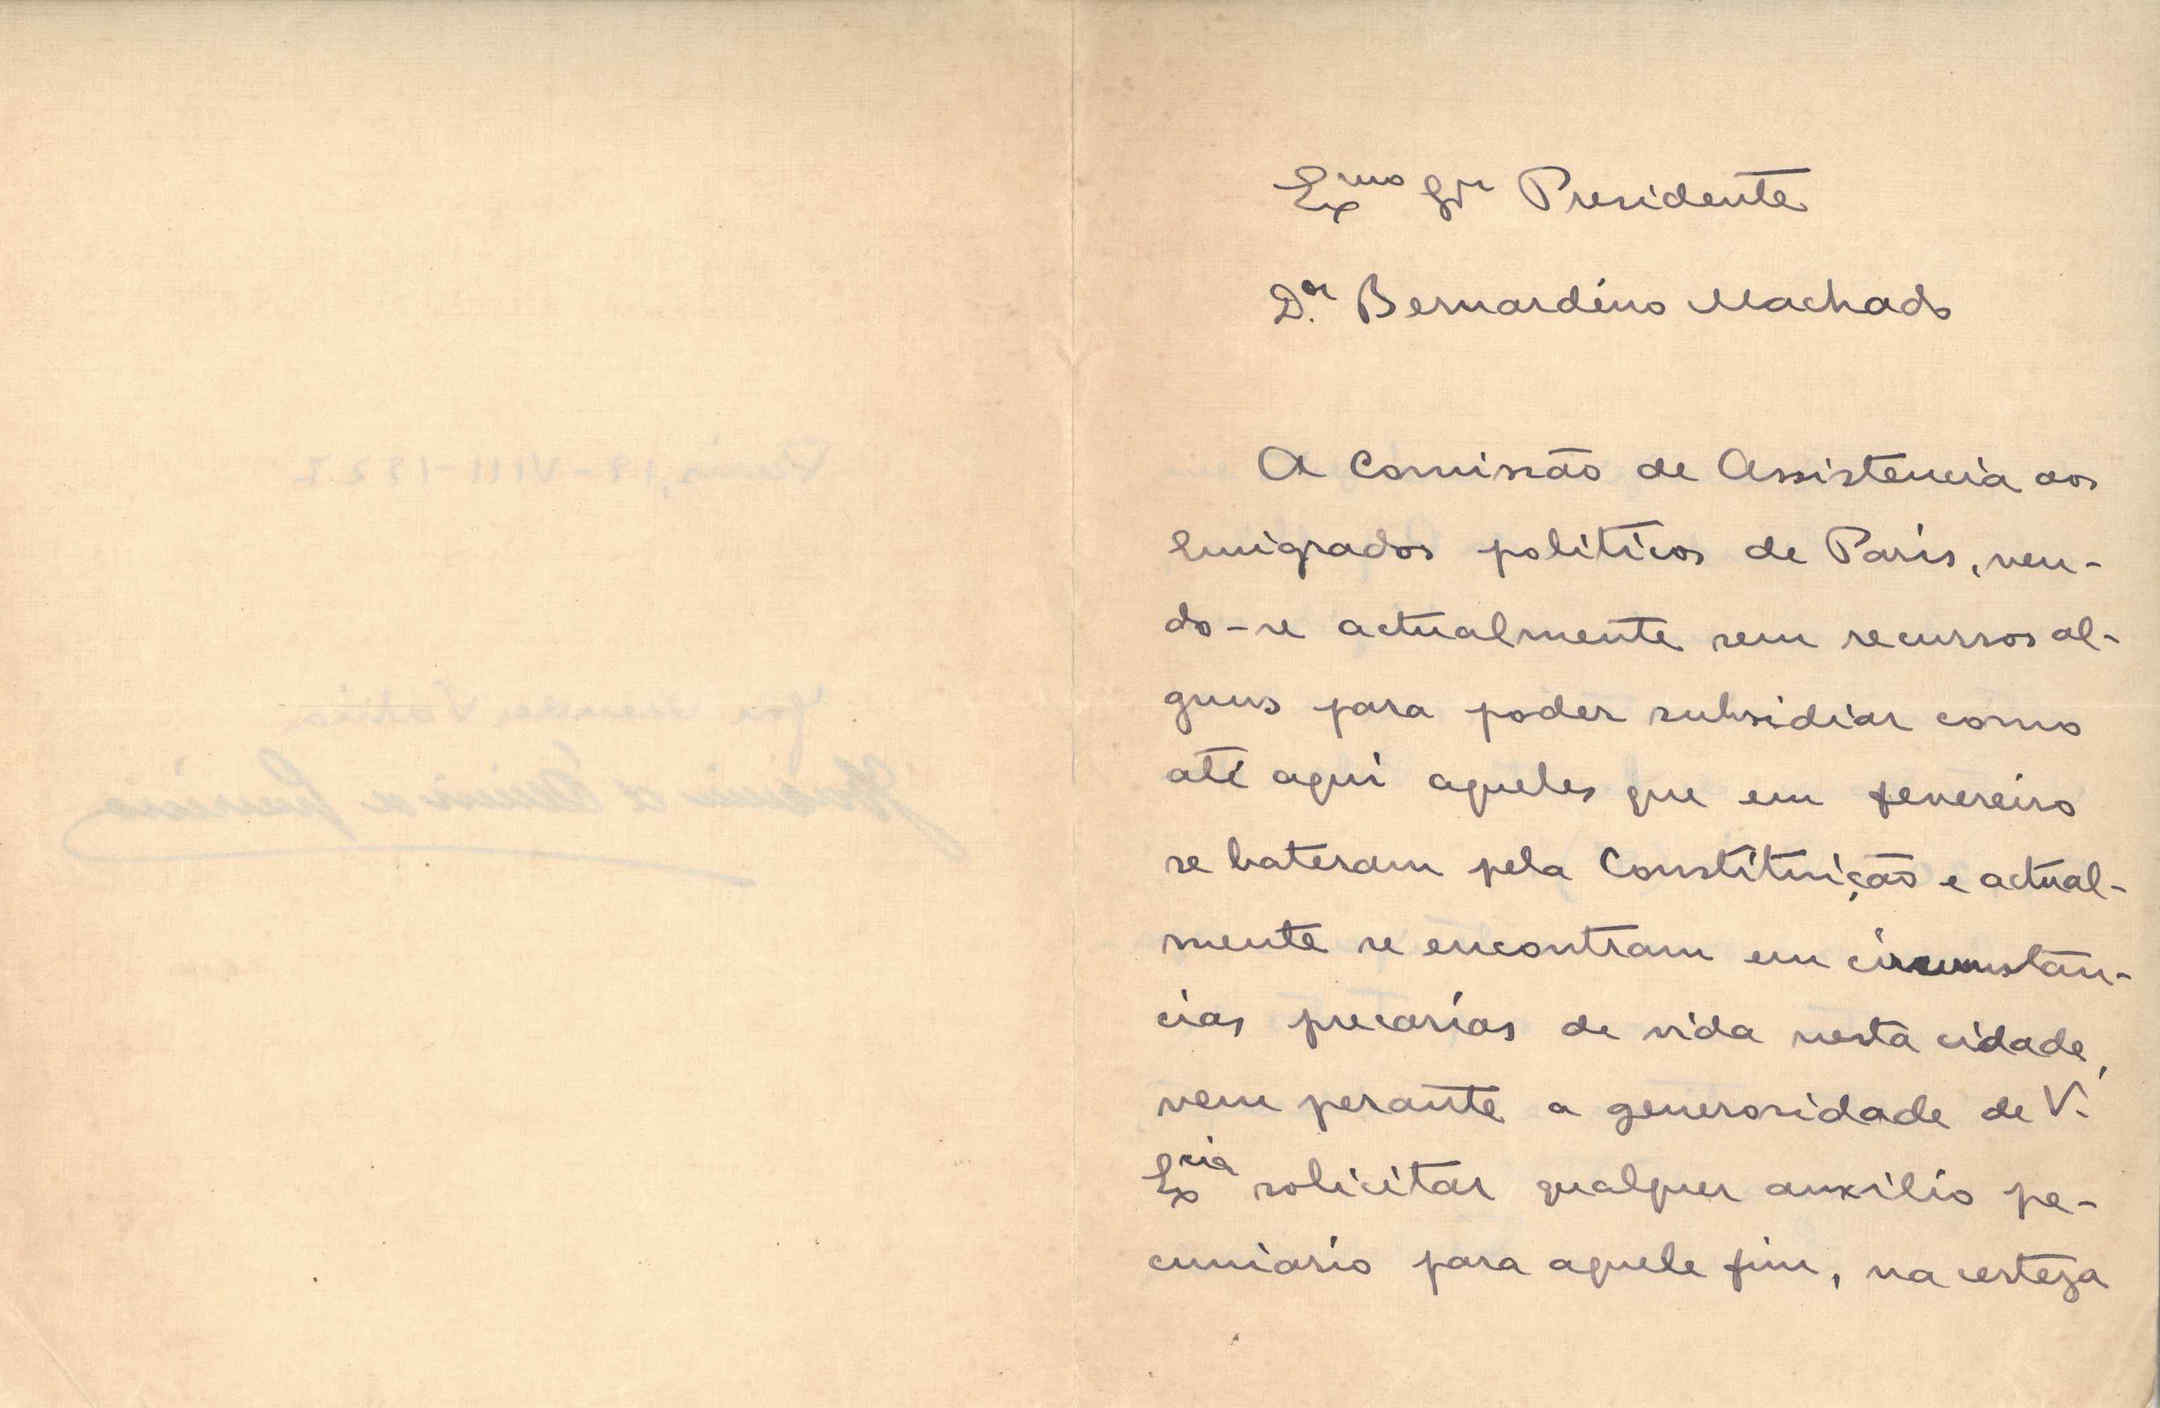 Exmo Snr Presidente
D.or Bernardino Machado
A Comissão de Assistencia aos
Emigrados politicos de Paris, ven-
do-se actualmente sem recursos al-
guns para poder subsidiar como
até aqui aqueles que em fevereiro
se bateram pela Constituição e actual-
mente se encontram em circunstan-
cias precarias de vida nesta cidade,
vem perante a generosidade de V.
Excia solicitar qualquer auxilio pe-
cuniario para aquele fim, na certeza